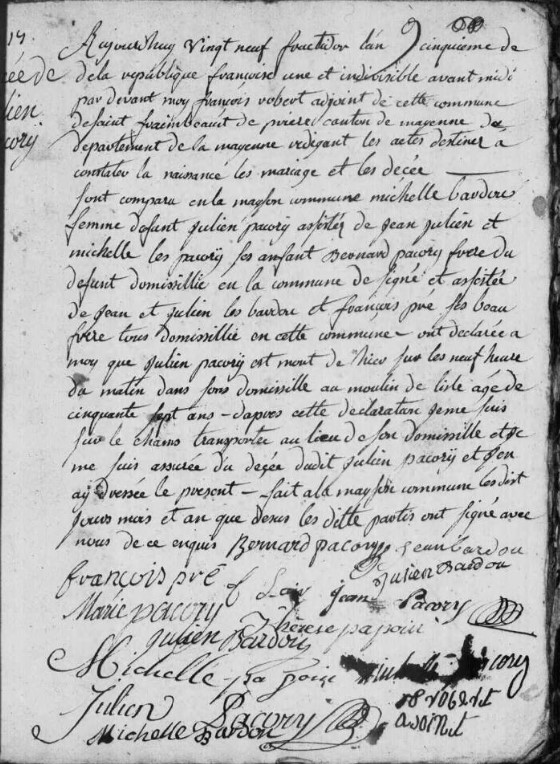 17.
cée de
lien
cory
Aujourdhuy vingt neuf fructidor l'an cinquieme de
de la republique françoise une et indivisible avant midi
par devant moy françois robert adjoint de cette commune
de saint fraimbaut de prieres canton de mayenne
departement de la mayenne redigant les actes destiner a
constater la naissance les mariage et les decée
sont comparu en la mayson commune michelle bardou
femme defunt Julien pacory assistée de Jean Julien et
michelle les pacory ses anfant Bernard pacory frere du
defunt domissillié en la commune de et assistée
de Jean et Julien les bardou et françois pre ses beau
frere tous domissillié en cette commune - ont declarée a
moy que Julien pacory est mort de hier sur les neuf heure
du matin dans sons domissille au moulin de lisle agé de
cinquante sept ans - dapres cette declaratan jeme suis
sur le chams transporter au lieu de son domissille et je
me suis assurée du deçée dudit Julien pacory et j'en
ay dressée le present - fait a la mayson commune les dist
jours mois et an que desus les ditte partis ont signé avec
nous de ce enquis Bernard pacory Jean bardou
françois pré Julien Bardou
Jean Pacory
Marie pacory Thérese
Julien Bardou
Michelle
Julien Pacory
robert
Michelle Bardou adoint